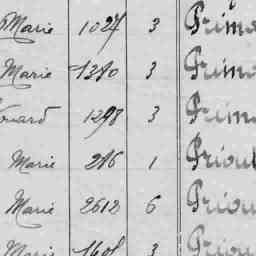 Marie 1027 3 Prim
Marie 1280 3 Prim
ouard 1298 3 Prim
Marie 216 1 Priou
Marie 2612 6 Priou
Marie 1601 3 Priou